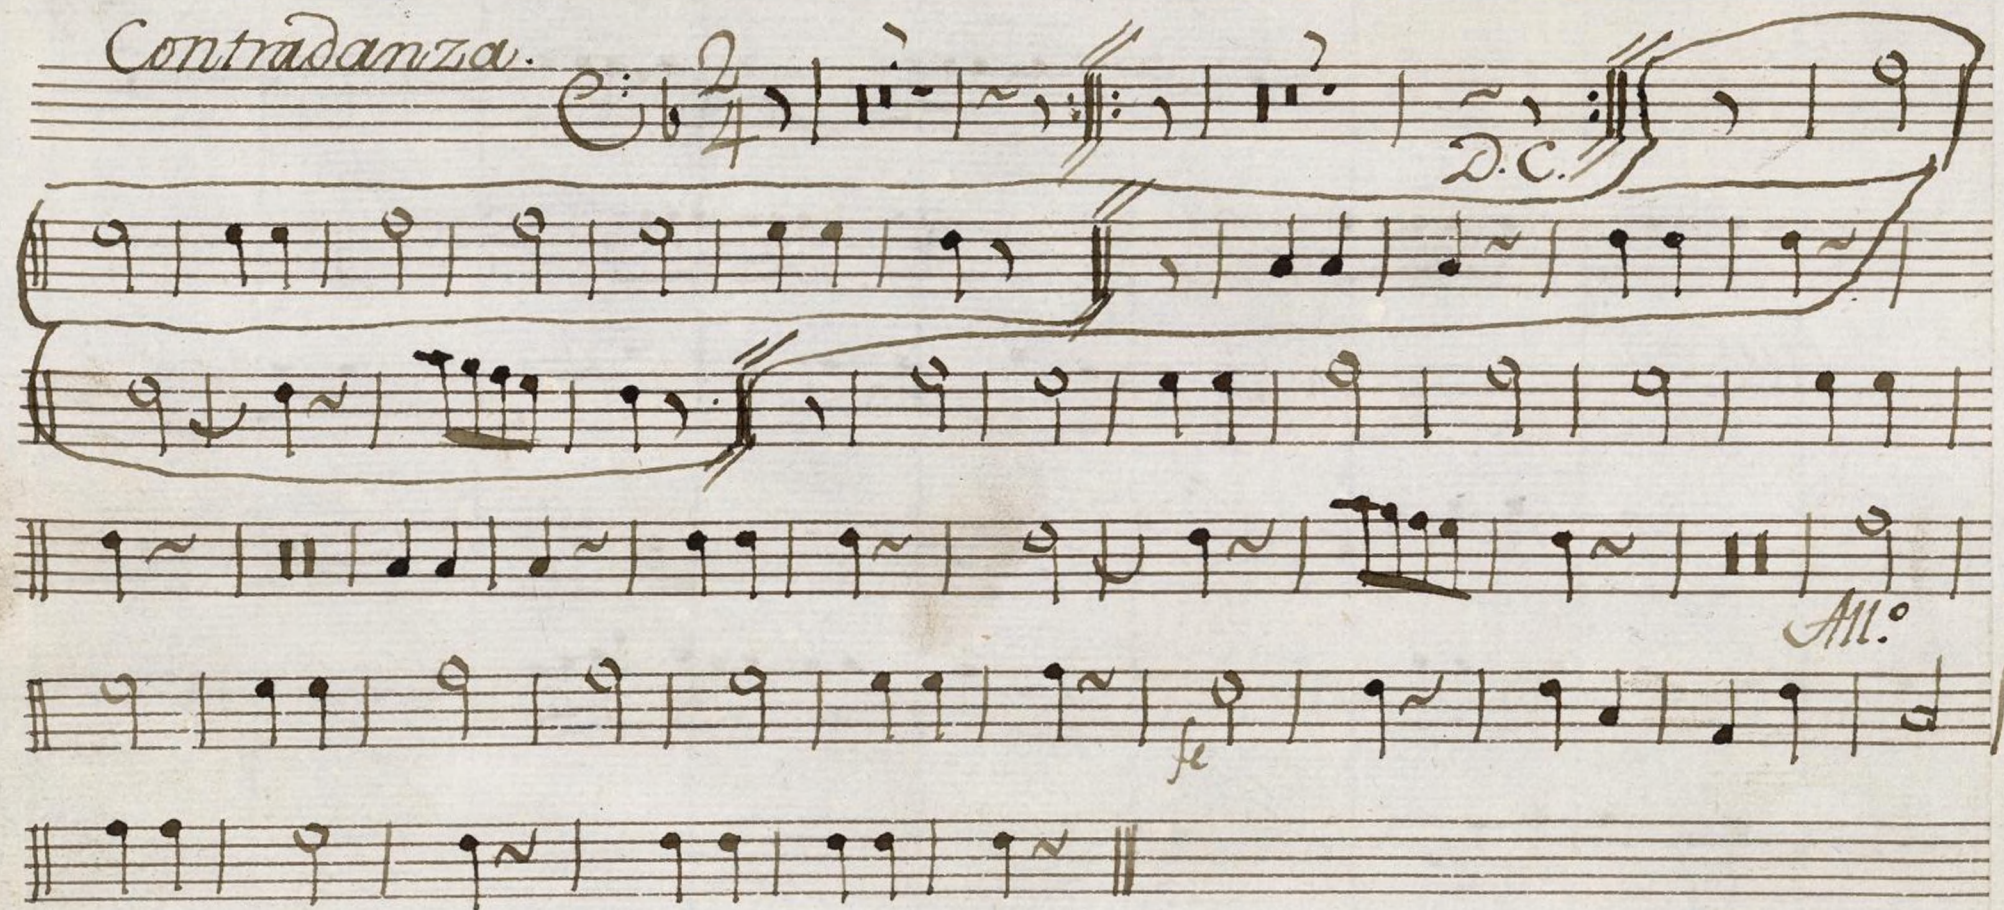 Contradanza.
2
4
7
7
D.C.
All.º
fe